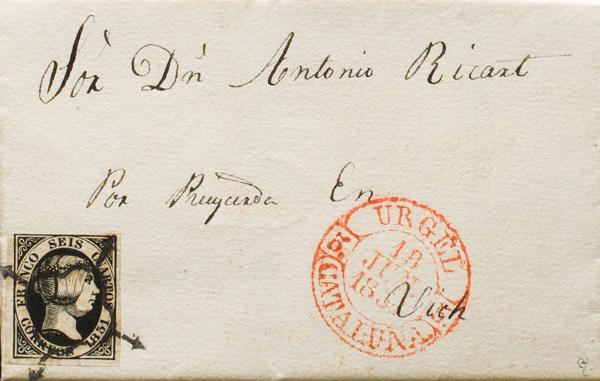 Sör Dn Antonio Ricart
Por Puigcerda En
Vich
FRANCO SEIS CUARTOS
CORREOS 1851
URGEL
18
CATALUÑA